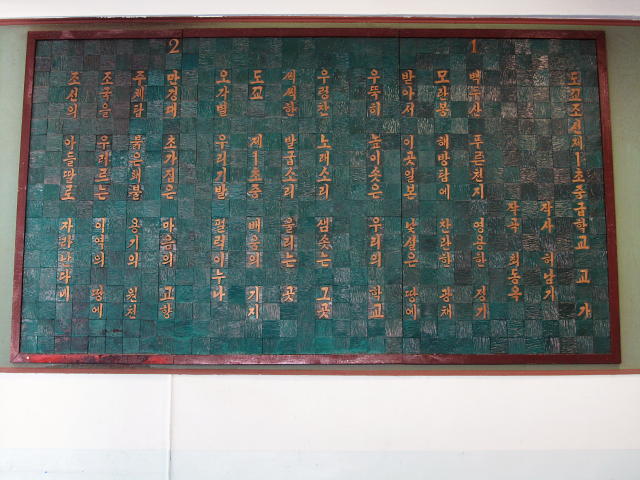 도꾜조선제1초중급학교 교가
작사 허남기
작곡 최동옥
1
백두산 푸른천지 영용한 정기
모란봉 해방탑에 찬란한 광채
받아서 이곳일본 낯설은 땅에
우뚝히 높이솟은 우리의 학교
우렁찬 노래소리 샘솟는 그곳
씩씩한 발굽소리 울리는 곳
도꾜 제1초중 배움의 기지
오각별 우리기발 펄럭이누나
2
만경대 초가집은 마음의 고향
주체탑 붉은해불 용기의 원천
조국을 우러르는 이역의 땅에
조선의 아들딸로 자라난다네